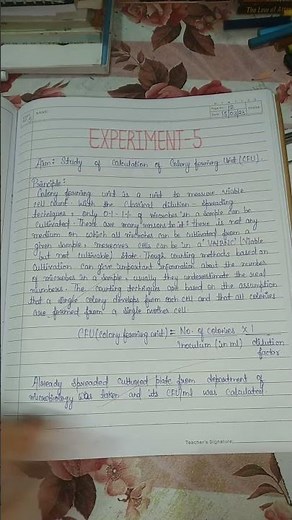 The Law of
EXPERIMENT-5
Aim:- Study of Calculation of Colony forming Unit (CFU).
Principle:-
Colony forming unit is a unit to measure viable
cell count with the classical dilution spreading
techniques, only 0.1-1.1% of microbes in a sample can be
cultivated. There are many reasons to it & there is not any
medium in which all microbes can be cultivated from a
given sample. moreover cells can be in a VNBNC (viable
but not cultivable) state. Though counting methods based on
cultivation can give important information about the number
of microbes in a sample, usually they underestimate the real
numbers. The counting techniques are based on the assumption
that a single colony develops from each cell and that all colonies
are formed from a single mother cell
CFU (colony forming unit) = No. of colonies × 1
Inoculum (in ml) dilution
factor
Already spreaded cultured plate from department of
microbiology was taken and its CFU/ml was calculated.
Teacher's Signature